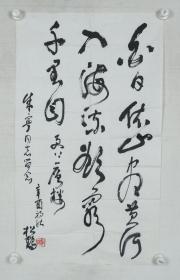 白日依山尽黄河
入海流欲穷
千里目更上一层楼
同志留念
辛酉初秋